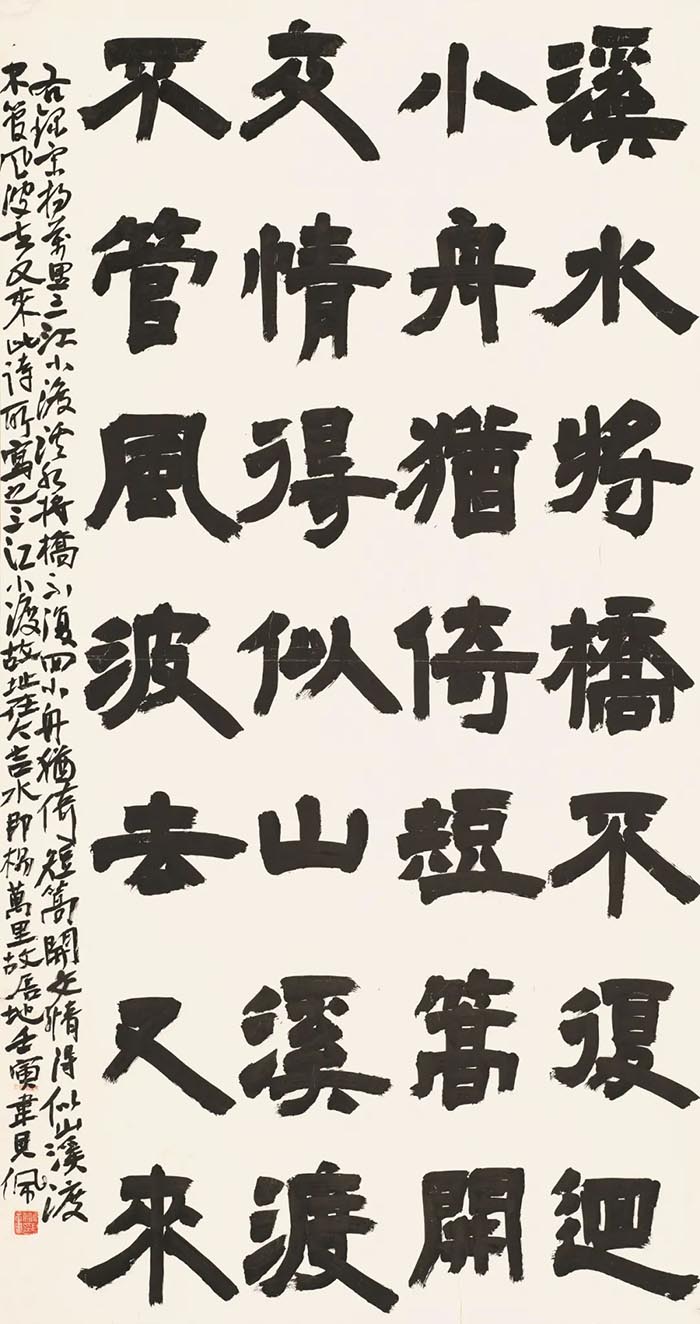 溪水將橋不復迴
小舟猶倚短篙開
交情得似山溪渡
不管風波去又來
右錄宋楊萬里三江小渡溪水將橋不復回小舟猶倚短篙開交情得似山溪渡
不管風波去又來此詩所寫之三江小渡故址在今吉水即楊萬里故居地壬寅韋見佩